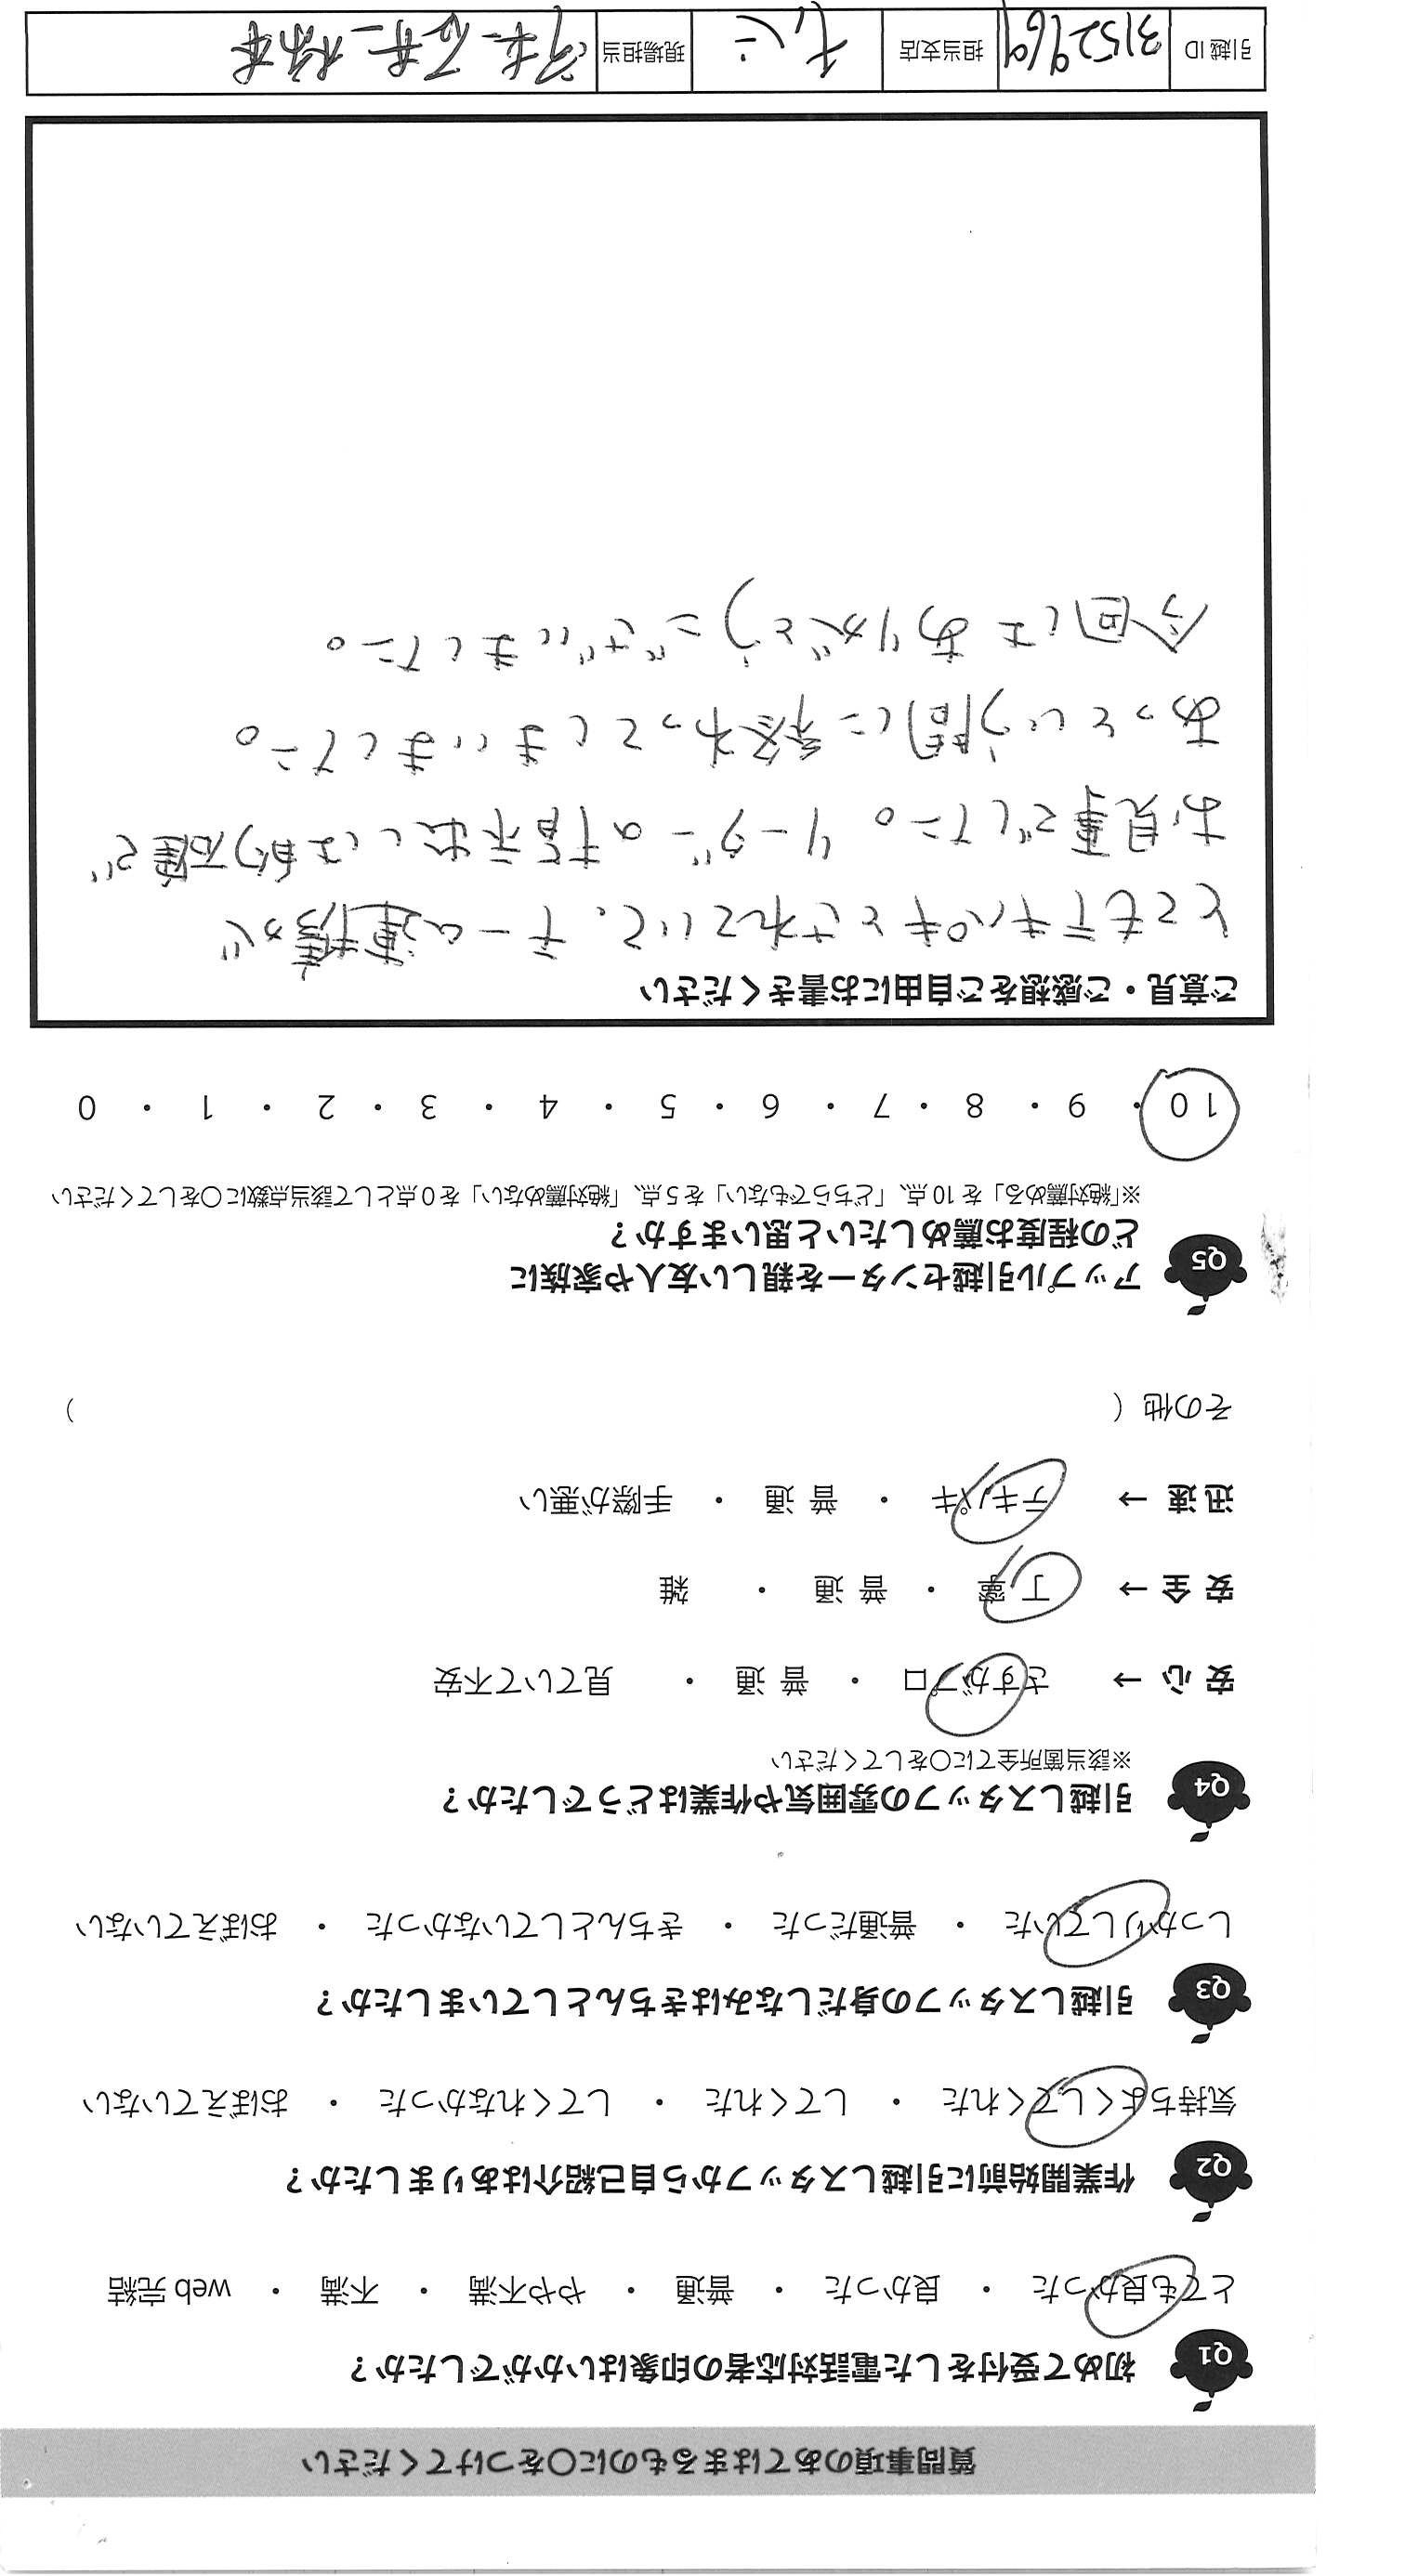 質問事項のあてはまるものに○をつけてください
Q1 初めて受付をした電話対応者の印象はいかがでしたか？
とても良かった ・ 良かった ・ 普通 ・ やや不満 ・ 不満 ・ web 完結
Q2 作業開始前に引越しスタッフから自己紹介はありましたか？
気持ちよくしてくれた ・ してくれた ・ してくれなかった ・ おぼえていない
Q3 引越しスタッフの身だしなみはきちんとしていましたか？
しっかりしていた ・ 普通だった ・ きちんとしていなかった ・ おぼえていない
Q4 引越しスタッフの雰囲気や作業はどうでしたか？
※該当箇所全てに○をしてください
安心 → さすがプロ ・ 普通 ・ 見ていて不安
安全 → 丁寧 ・ 普通 ・ 雑
迅速 → テキパキ ・ 普通 ・ 手際が悪い
その他 （ ）
Q5 アップル引越センターを親しい友人や家族に
どの程度お薦めしたいと思いますか？
※「絶対薦める」を 10 点、「どちらでもない」を 5 点、「絶対薦めない」を 0 点として該当点数に○をしてください
10 ・ 9 ・ 8 ・ 7 ・ 6 ・ 5 ・ 4 ・ 3 ・ 2 ・ 1 ・ 0
ご意見・ご感想をご自由にお書きください
とてもテキパキとされていて、チームの連携が
お見事でした。リーダーの指示出しは的確で
あっという間に終わってしまいました。
今回はありがとうございました。
引越 ID 3152969 担当支店 現場担当 石井